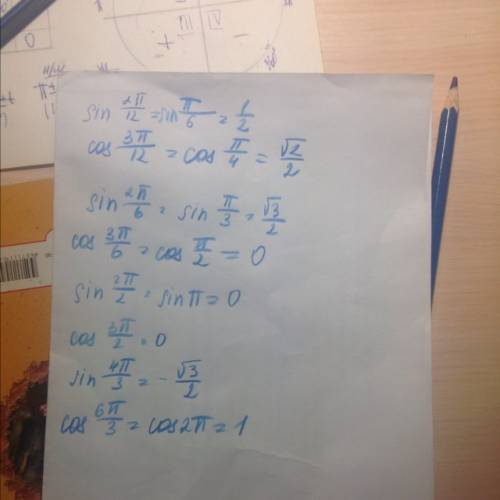 III IV
+ -
0
sin 2π/12 = sin π/6 = 1/2
cos 3π/12 = cos π/4 = √2/2
sin 2π/6 = sin π/3 = √3/2
cos 3π/6 = cos π/2 = 0
sin 2π/2 = sin π = 0
cos 3π/2 = 0
sin 4π/3 = - √3/2
cos 6π/3 = cos 2π = 1